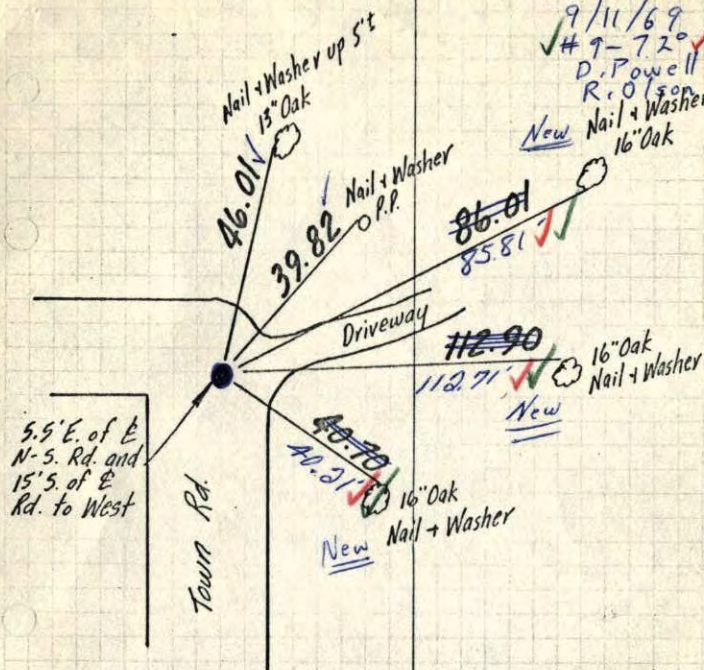 9/11/69
# 9-72°
D. Powell
R. Olson
Nail + Washer up 5'±
13" Oak
46.01
Nail + Washer
P.P.
39.82
New
Nail + Washer
16" Oak
86.01
85.81'
Driveway
112.90
112.71'
16" Oak
Nail + Washer
New
40.70
40.21'
16" Oak
Nail + Washer
New
5.5' E. of ℄
N-S. Rd. and
15' S. of ℄
Rd. to West
Town Rd.